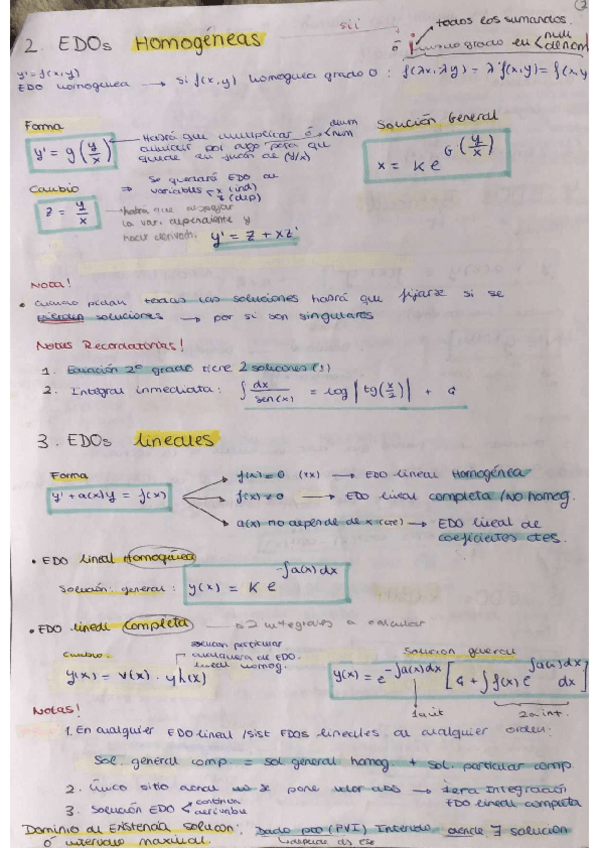 2. EDOs Homogéneas
sii
todos los sumandos.
ó mismo grado en < num denom
y' = f(x,y)
EDO homogénea → si f(x,y) homogénea grado 0 : f(λx, λy) = λ f(x,y) = f(x,y
Forma
y' = g(y/x)
Habrá que multiplicar ó
dividir por algo para que
quede en función de (y/x)
Solución General
x = K e^G(y/x)
Cambio
z = y/x
⇒ Se quedará EDO de
variables x (ind)
z (dep)
habrá que despejar
la var. dependiente y
hacer derivada.
y' = z + xz'
Nota!
• Cuando pidan todas las soluciones habrá que fijarse si se
pierden soluciones → por si son singulares
Notas Recordatorias!
1. Ecuación 2º grado tiene 2 soluciones (!)
2. Integral inmediata: ∫ dx/sen(x) = log |tg(x/2)| + C
3. EDOs lineales
Forma
y' + a(x)y = f(x)
f(x) = 0 (∀x) → EDO lineal Homogénea
f(x) ≠ 0 → EDO lineal completa / No homog.
a(x) no depende de x (cte) → EDO lineal de
coeficientes ctes.
• EDO lineal Homogénea
Solución general: y(x) = K e^-∫a(x)dx
• EDO lineal completa → 2 integrales a calcular
Cambio.
solución particular
cualquiera de EDO.
lineal homog.
y(x) = v(x) · yh(x)
Solución general
y(x) = e^-∫a(x)dx [C + ∫f(x) e^∫a(x)dx dx]
1a int
2a int.
Notas!
1. En cualquier EDO lineal /sist EDOs lineales de cualquier orden:
Sol. general comp = sol general homog + sol. particular comp.
2. Único sitio donde no se pone valor abs → 1era Integración
EDO lineal completa
3. Solución EDO < continua derivable
Dominio de Existencia solución: Dado pto (PVI) Intervalo donde ∃ solución
ó intervalo maximal.
depende de ese